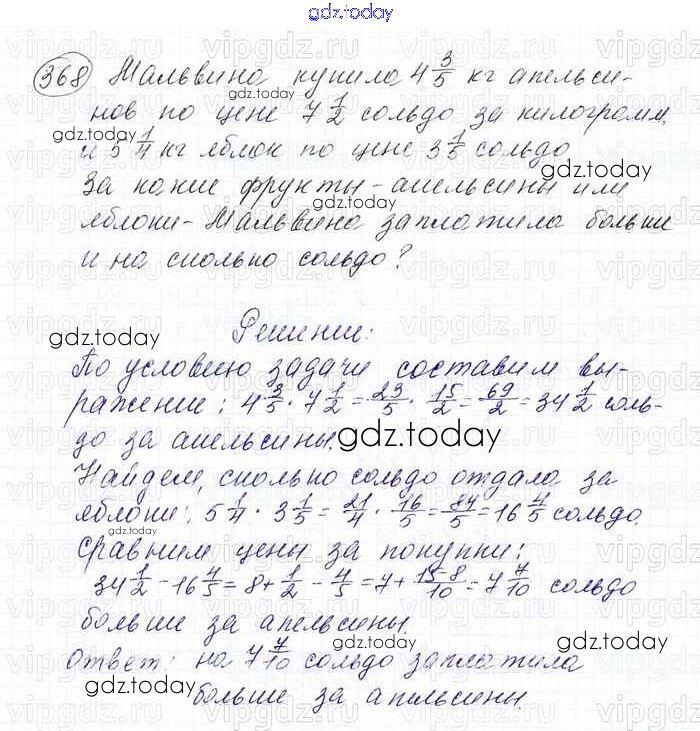 gdz.today
368 Мальвина купила 4 3/5 кг апельси-
gdz.today
нов по цене 7 1/2 сольдо за килограмм,
gdz.today
и 5 1/4 кг яблок по цене 3 1/5 сольдо
За какие фрукты - апельсины или
gdz.today
яблоки - Мальвина заплатила больше
и на сколько сольдо?
gdz.today
Решение:
По условию задачи составим вы-
ражение: 4 3/5 · 7 1/2 = 23/5 · 15/2 = 69/2 = 34 1/2 соль-
до за апельсины.
gdz.today
Найдем, сколько сольдо отдала за
яблоки: 5 1/4 · 3 1/5 = 21/4 · 16/5 = 84/5 = 16 4/5 сольдо.
Сравним цены за покупки:
34 1/2 - 16 4/5 = 8 + 1/2 - 4/5 = 7 + 15-8/10 = 7 7/10 сольдо
больше за апельсины.
gdz.today
gdz.today
Ответ: на 7 7/10 сольдо заплатила
gdz.today
больше за апельсины.
gdz.today